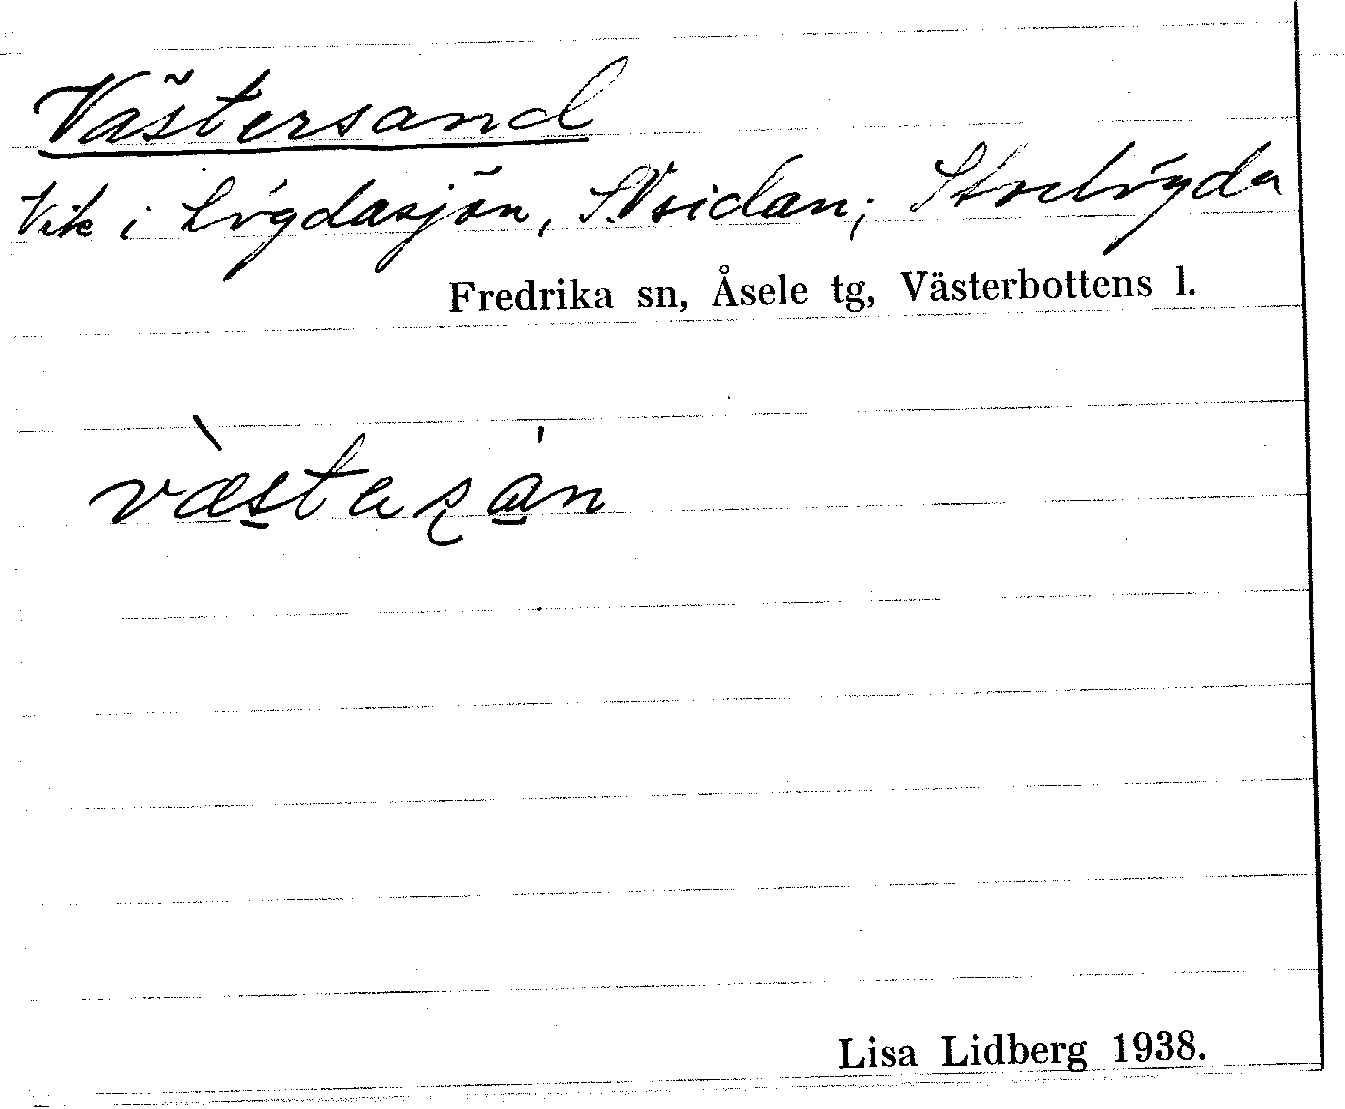 Västersand
Vik i Lögdasjön, SV sidan; Storlögda
Fredrika sn, Åsele tg, Västerbottens l.
Lisa Lidberg 1938.